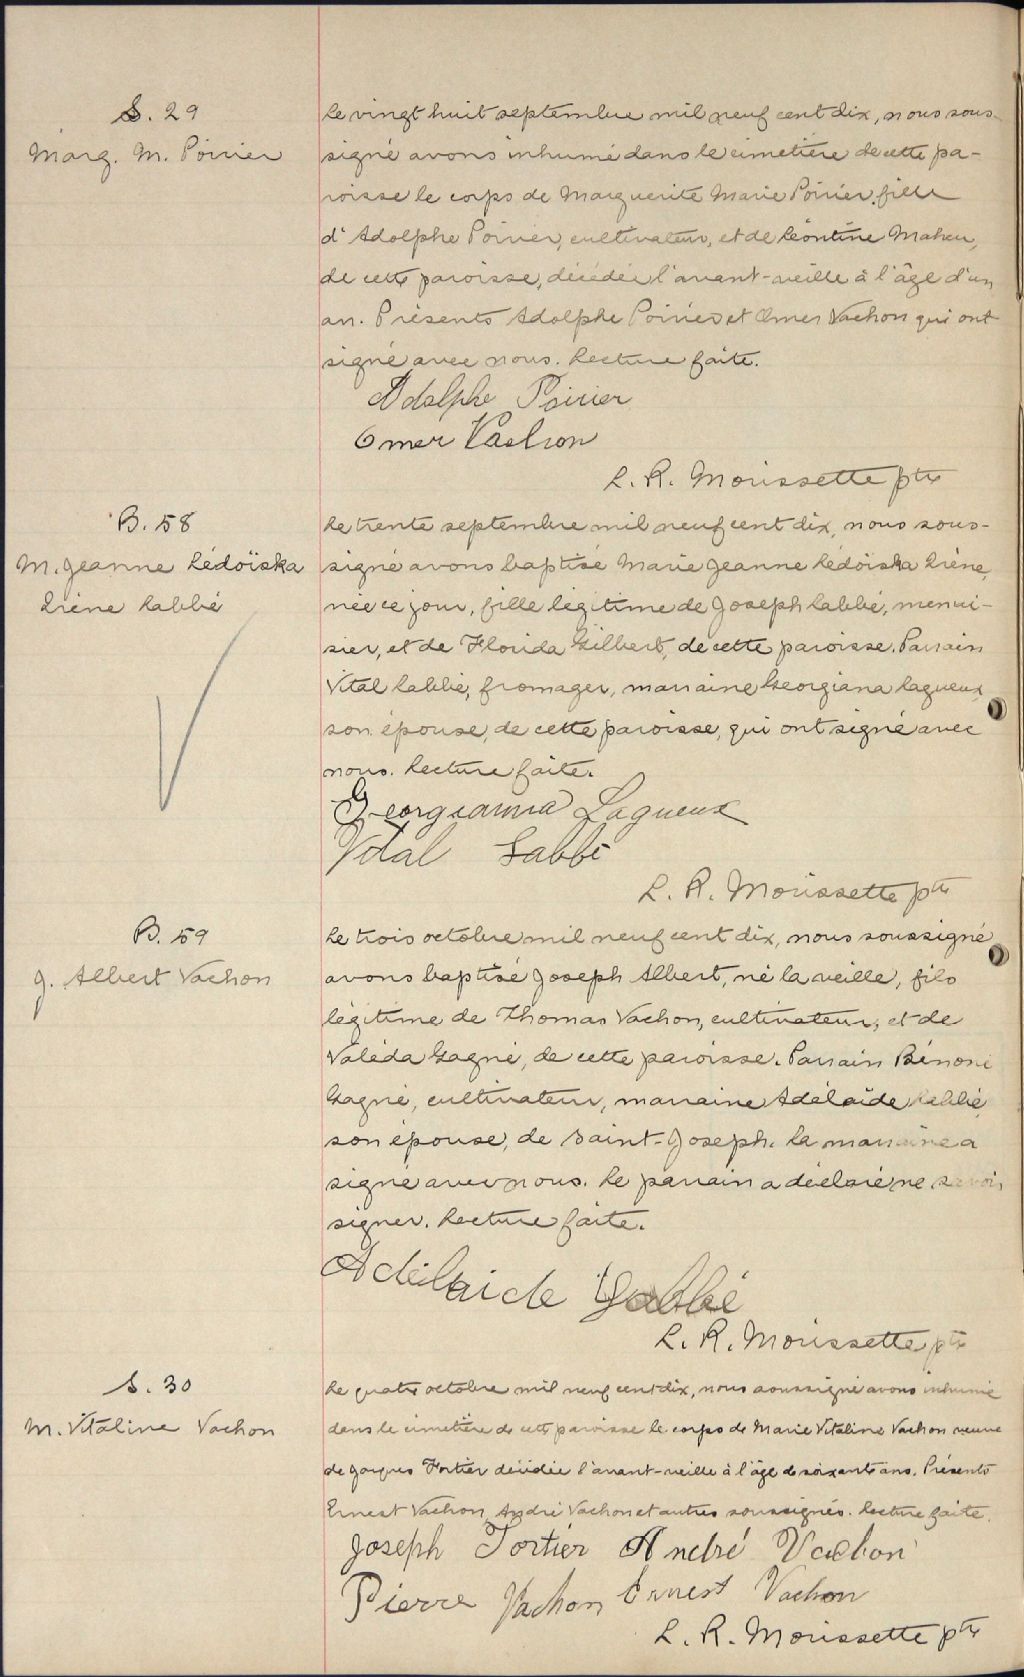 S. 29
Marg. M. Poirier
Le vingt huit septembre mil neuf cent dix, nous sous-
signé avons inhumé dans le cimetière de cette pa-
roisse le corps de Marguerite Marie Poirier, fille
d'Adolphe Poirier, cultivateur, et de Léontine Maheu,
de cette paroisse, décédée l'avant-veille à l'âge d'un
an. Présents Adolphe Poirier et Omer Vachon qui ont
signé avec nous. Lecture faite.
Adolphe Poirier
Omer Vachon
L. R. Morissette ptre
B. 58
M. Jeanne Lédoïska
Irène Labbé
Le trente septembre mil neuf cent dix, nous sous-
signé avons baptisé Marie Jeanne Lédoïska Irène,
née ce jour, fille légitime de Joseph Labbé, menui-
sier, et de Florida Gilbert, de cette paroisse. Parrain
Vital Labbé, fromager, marraine Georgiana Lagueux,
son épouse, de cette paroisse, qui ont signé avec
nous. Lecture faite.
Georgianna Lagueux
Vital Labbé
L. R. Morissette ptre
B. 59
J. Albert Vachon
Le trois octobre mil neuf cent dix, nous soussigné
avons baptisé Joseph Albert, né la veille, fils
légitime de Thomas Vachon, cultivateur, et de
Valéda Gagné, de cette paroisse. Parrain Bénoni
Gagné, cultivateur, marraine Adélaïde Labbé,
son épouse, de Saint-Joseph. La marraine a
signé avec nous. Le parrain a déclaré ne savoir
signer. Lecture faite.
Adélaide Labbé
L. R. Morissette ptre
S. 30
M. Vitaline Vachon
Le quatre octobre mil neuf cent dix, nous soussigné avons inhumé
dans le cimetière de cette paroisse le corps de Marie Vitaline Vachon veuve
de Jacques Fortier décédée l'avant-veille à l'âge de soixante ans. Présents
Ernest Vachon, André Vachon et autres soussignés. Lecture faite.
Joseph Fortier André Vachon
Pierre Vachon Ernest Vachon
L. R. Morissette ptre